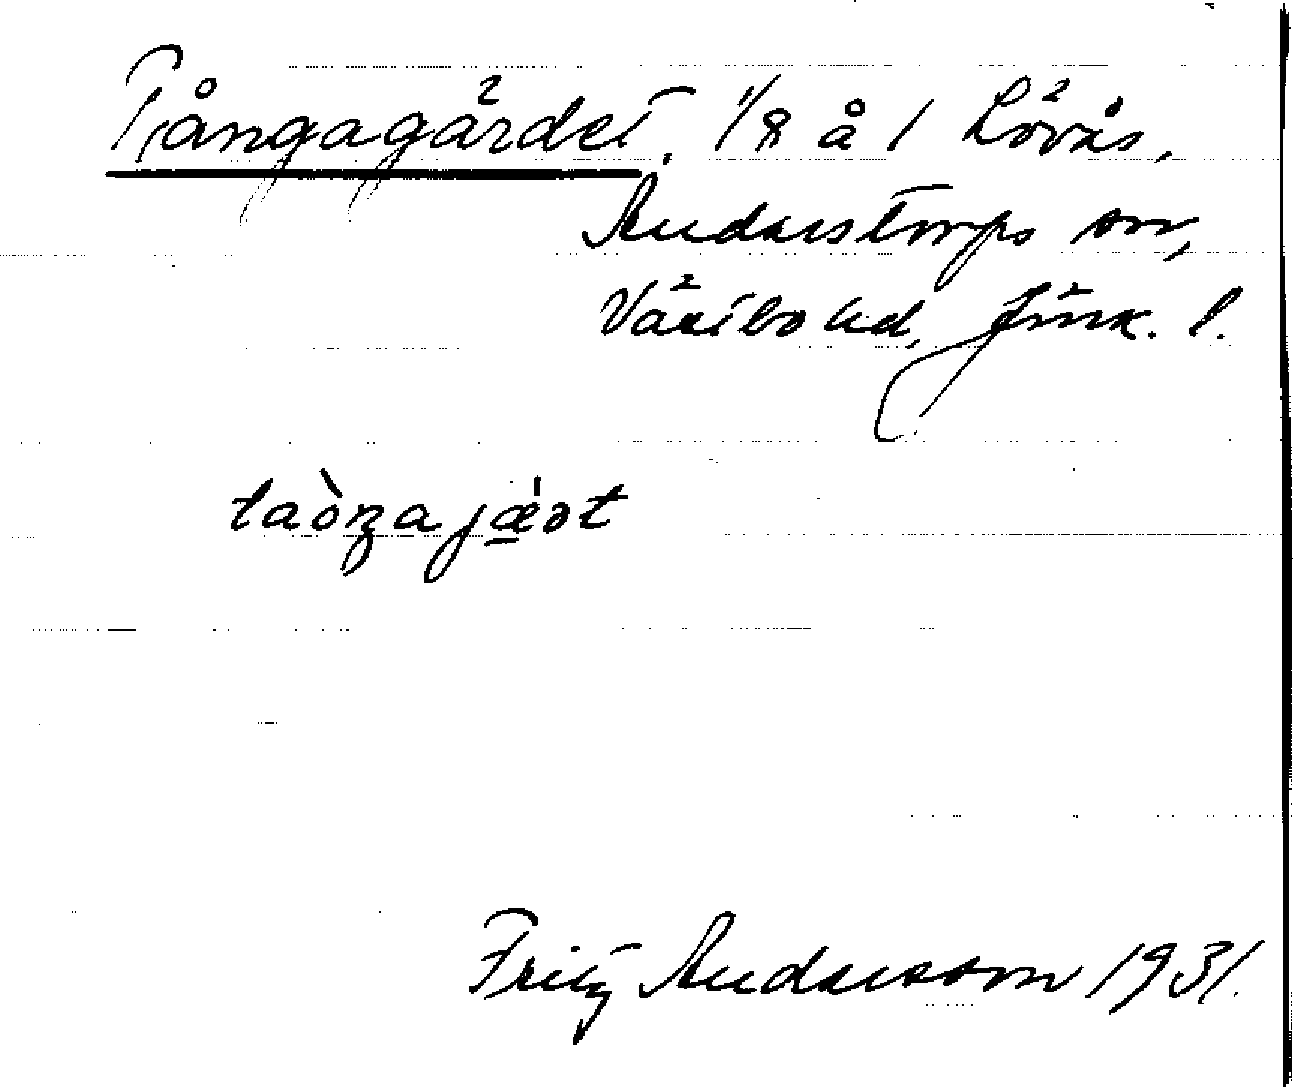 Tångagärdet, 1/8 å 1 Lövås,
Anderstorps sn,
Västbo hd, Jönk. l.
taòŋa jæ̱̀ət
Fritz Andersson 1931.